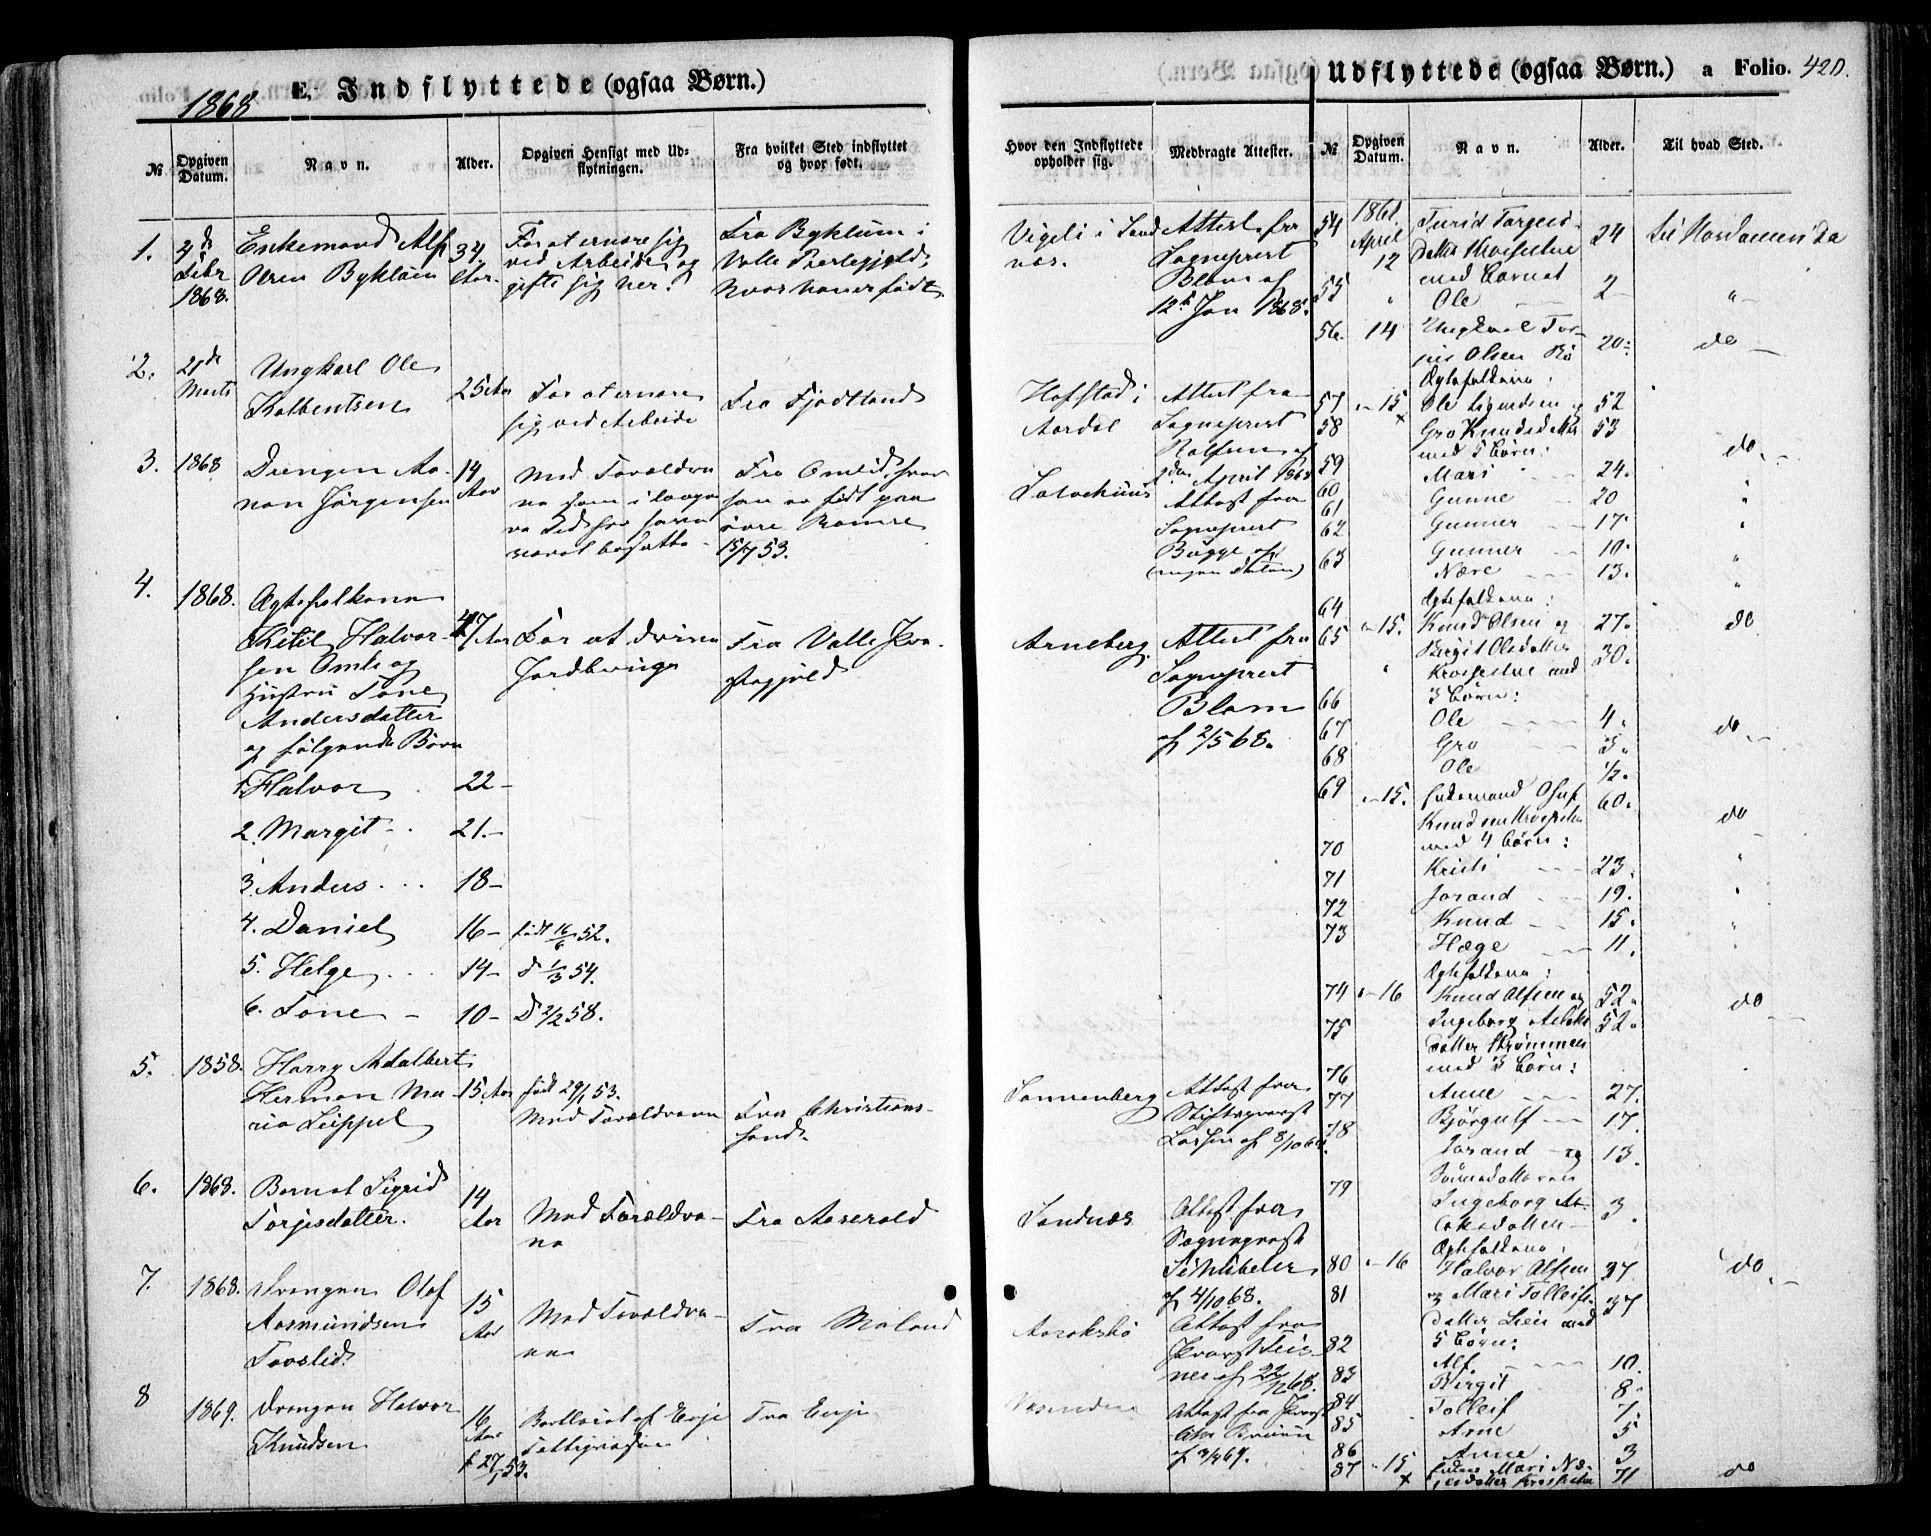 1868
E. Indflyttede (ogsaa Børn.)
№
Opgiven Datum.
Navn.
Alder.
Opgiven Hensigt med Udflytningen.
Fra hvilket Sted indflyttet og hvor født.
Hvor den Indflyttede opholder sig.
Medbragte Attester.
1.
4de
Febr
1868.
Enkemand Alf
Olsen Byklum
34
Aar.
For at ernære sig
ved Arbeide og
gifte sig her.
Fra Byklum i
Valle Præstegjeld,
hvor han er født
Vigeli i Sand
næs.
Attest fra
Sogneprest
Blom af
12te Jan 1868.
2.
21de
Marts
Ungkarl Ole
Kolbentsen
25 Aar
For at ernære
sig ved Arbeide
Fra Fjotland
Hofstad i
Aardal
Attest fra
Sogneprest
af
April 1868
3.
1868
Drengen Aa-
non Jørgensen
14
Aar
Med Forældre
ne som i længe
re Tid har
været bosatte
Fra Omlid, hvor
han er født paa
øvre Ramse
15/7 53.
Attest fra
Sogneprest
Bugge af
(ingen Datum)
4.
1868.
Ægtefolkene
Ketil Halvor-
sen Omli og
Hustru Tone
Andersdatter
og følgende Børn
47 Aar
For at drive
Jordbrug
Fra Valle Præ-
stegjeld
Arneberg
Attest fra
Sogneprest
Blom
af 2/5 68.
1. Halvor 22 -
2. Margit - . 21. -
3. Anders . . . 18 -
4. Daniel 16 - født 16/6 52.
5. Helge . . . 14 - D 1/3 54.
6. Tone - 10 - D 2/2 58.
5.
1858.
Harry Adalbert
Herman Ma
ria Lüppel
15 Aar
født 29/1 53.
Med Forældrene
Fra Christians-
sand.
Sonnenberg
Attest fra
Stiftsprovst
af 8/10 68
6.
1868.
Barnet Sigrid
Torjesdatter.
14
Aar
Med Forældre-
ne
Fra Aaserald
Sandnæs
Attest fra
Sogneprest
af 4/10 68.
7.
1868.
Drengen Olaf
Aasmundsen
Tovslid
15
Aar
Med Forældre-
ne
Fra Moland
Attest fra
Provst
af 22/12 68.
8
1869.
Drengen Halvor
Knudsen
16
Aar
f 27/5 53.
af Evje
Fra Evje
Attest fra Provst
Bruun
af 2/4 69.
Udflyttede (ogsaa Børn.)
a Folio. 420.
№
Opgiven Datum.
Navn.
Alder.
Til hvad Sted.
54
1861.
April
12
Turid Targeis-
datter
24
til Nordamerika
med Barnet
55 " Ole 2 - " -
56. 14
Ungkarl Tor-
jus Olsen
20 -
do -
Ægtefolkene:
57 " - 15 x Ole Sigurdsen og 52
58 Gro Knudsdatter 53
med 5 Børn: do -
59 Mari 24. "
60 Gunne 20 "
61 Gunner 17. "
62 Gunner 10. "
63 Nære 13. "
Ægtefolkene:
64 " - 15. Knud Olsen og 27. do
65 " Birgit Olsdatter 30.
med
3 Børn:
66 Ole 4. do -
67 Gro 3.
68 Ole 1/2.
69 " - 15. Enkemand Olaf 60. do
Knudsen
med 4 Børn:
70 Kristi 23. "
71 Jorand 19. "
72 Knud 15. "
73 Hæge 11.
Ægtefolkene:
74 " - 16 Knud Alfsen og 52. do -
75 Ingeborg Aslaks 52.
datter Strømmen
med 3 Børn:
76 Anne 27.
77 Bjørgulf 17.
78 Jorand - og 13.
Sønnedatteren
79 Ingeborg As-
laksdatter 3.
Ægtefolkene:
80 " - 16 Halvor Alfsen 37 do -
81 og Mari Tolleifs- 37
datter Lien med
5 Børn:
82 Alf 10.
83 Birgit 8.
84 Tolleif 7.
85 Arne 5
86 Anne 3
87 " 15 x Mari
71 do